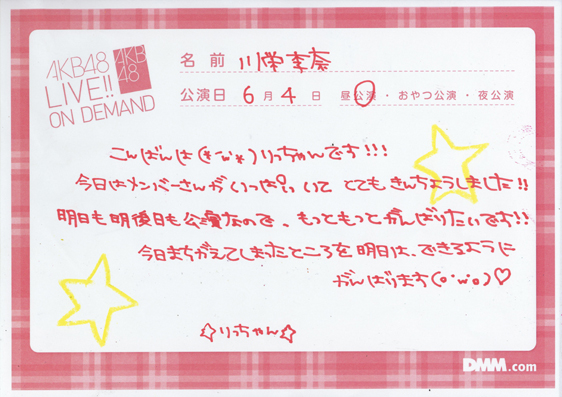 AKB48
LIVE!!
ON DEMAND
AKB
48
名前 川栄李奈
公演日 6月4日 昼公演・おやつ公演・夜公演
こんばんは(*˙ω˙*)りっちゃんです!!!
今日はメンバーさんがいっぱいいて とてもきんちょうしました!!
明日も明後日も公演なので、もっともっとがんばりたいです!!
今日まちがえてしまったところを明日は、できるように
がんばります(o˙ω˙o)♡
☆りっちゃん☆
DMM.com